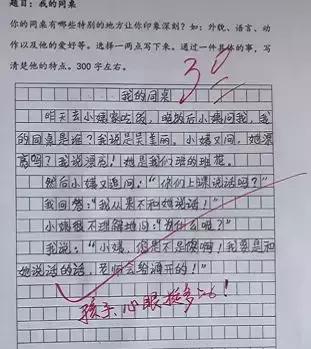 题目：我的同桌
你的同桌有哪些特别的地方让你印象深刻？如：外貌、语言、动
作以及他的爱好等。选择一两点写下来。通过一件具体的事，写
清楚他的特点。300字左右。
30
我的同桌
昨天去小姨家吃饭，然后小姨问我，我
的同桌是谁？我说是吴美丽。小姨又问，她漂
亮吗？我说漂亮！她是我们班的班花。
然后小姨又追问：“你们上课说话吗？”
我回答：“我从来不和她说话！”
小姨很不理解地问：“为什么呢？”
我说：“小姨，你是不是傻啊！我要是和
她说话的话，老师会给调开的！”
孩子、心眼挺多的！